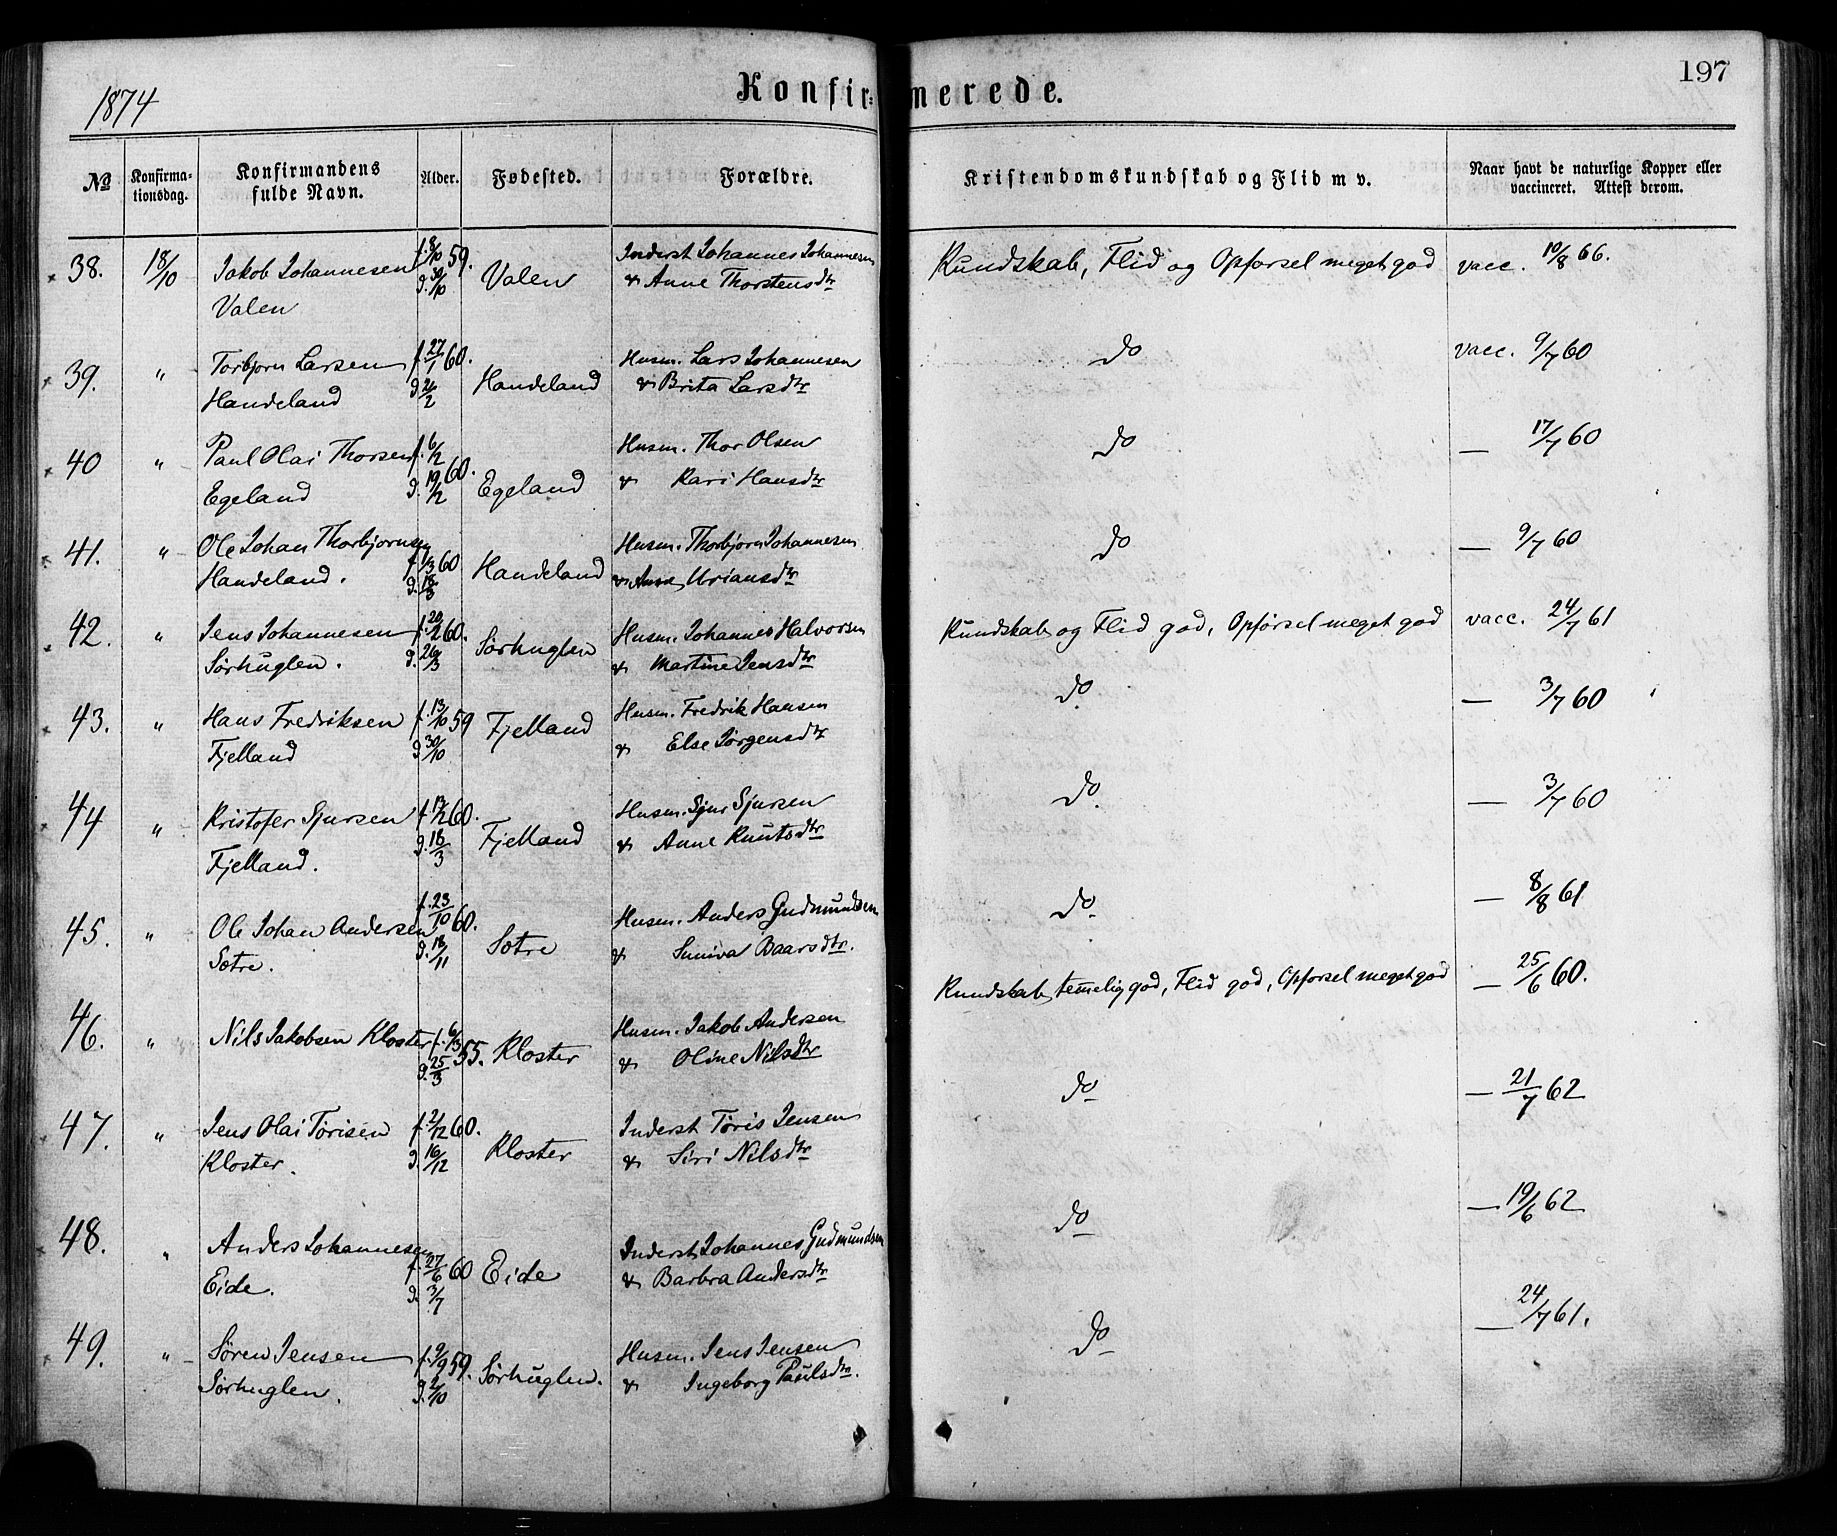 1874
Konfir=merede.
197
No
Konfirma-
tionsdag.
Konfirmandens
fulde Navn.
Alder.
Fødested.
Forældre.
Kristendomskundskab og Flid m v.
Naar havt de naturlige Kopper eller
vaccineret. Attest derom.
38. 18/10 Jakob Johannesen f. 8/10 59. Valen Inderst Johannes Johannesen Kundskab, Flid og Opførsel meget god vacc. 10/8 66.
Valen g. 30/10 & Anne Thorstensdtr
39. " Torbjørn Larsen f. 27/1 60. Handeland Husm. Lars Johannesen do vacc. 9/7 60
Handeland g. 26/2 & Brita Larsdtr
40 " Paul Olai Thorsen f. 6/2 60. Egeland Husm. Thor Olsen do — 17/7 60
Egeland g. 19/2 & Kari Hansdtr
41. " Ole Johan Thorbjørnsen f. 1/3 60 Handeland Husm. Thorbjørn Johannesen do — 9/7 60
Handeland. g. 18/3 & Anna Uriansdtr
42. " Jens Johannesen f. 20/2 60. Sørhuglen Husm. Johannes Halvorsen Kundskab og Flid god, Opførsel meget god vacc. 24/7 61
Sørhuglen. g. 26/3 & Martine Jensdtr
43. " Hans Fredriksen f. 13/10 59 Fjelland Husm. Fredrik Hansen do — 3/7 60
Fjelland g. 30/10 & Else Jørgensdtr
44 " Kristofer Sjursen f. 13/2 60. Fjelland Husm. Sjur Sjursen do. — 3/7 60
Fjelland. g. 18/3 & Anne Knutsdtr
45. " Ole Johan Andersen f. 23/10 60. Sætre Husm. Anders Gudmundsen do — 8/8 61
Sætre. g. 18/11 & Suniva Baarsdtr.
46. " Nils Jakobsen Kloster f. 6/3 55. Kloster Husm. Jakob Andersen Kundskab temelig god, Flid god, Opførsel meget god — 25/6 60.
g. 25/3 & Oline Nilsdtr
47. " Jens Olai Tørisen f. 2/12 60. Kloster Inderst Tøris Jensen do — 21/7 62
Kloster. g. 16/12 & Siri Nilsdtr
48. " Anders Johannesen f. 27/6 60 Eide Inderst Johannes Gudmundsen do — 19/6 62
Eide. g. 3/7 & Barbra Andersdtr
49. " Søren Jensen f. 9/9 59. Sørhuglen. Husm. Jens Jensen do — 24/7 61.
Sørhuglen. g. 2/10 & Ingeborg Paulsdtr.